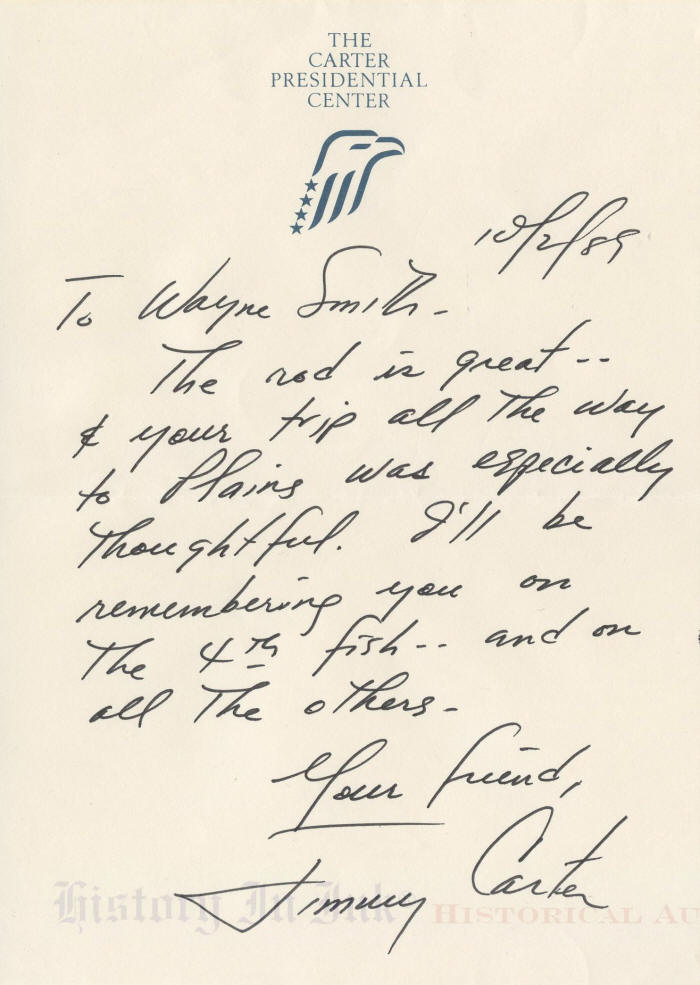 THE
CARTER
PRESIDENTIAL
CENTER
10/2/89
To Wayne Smith-
The rod is great--
& your trip all the way
to Plains was especially
thoughtful. I'll be
remembering you on
the 4th fish-- and on
all the others-
Your friend,
Jimmy Carter
History In Ink HISTORICAL AU